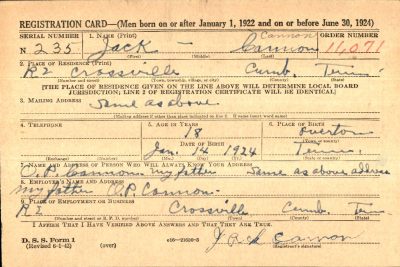 REGISTRATION CARD—(Men born on or after January 1, 1922 and on or before June 30, 1924)
SERIAL NUMBER 1. NAME (Print) Cannon ORDER NUMBER
N 235 Jack — Cannon 11,071
(First) (Middle) (Last)
2. PLACE OF RESIDENCE (Print)
R2 Crossville Cumb. Tenn.
(Number and street) (Town, township, village, or city) (County) (State)
[THE PLACE OF RESIDENCE GIVEN ON THE LINE ABOVE WILL DETERMINE LOCAL BOARD
JURISDICTION; LINE 2 OF REGISTRATION CERTIFICATE WILL BE IDENTICAL]
3. MAILING ADDRESS
Same as above
[Mailing address if other than place indicated on line 2. If same insert word same]
4. TELEPHONE 5. AGE IN YEARS 6. PLACE OF BIRTH
18 Overton
DATE OF BIRTH (Town or county)
Jan. 14 1924 Tenn.
(Exchange) (Number) (Mo.) (Day) (Yr.) (State or country)
7. NAME AND ADDRESS OF PERSON WHO WILL ALWAYS KNOW YOUR ADDRESS
O.P. Cannon my father Same as above address
8. EMPLOYER'S NAME AND ADDRESS
My father O.P. Cannon
9. PLACE OF EMPLOYMENT OR BUSINESS
R2 Crossville Cumb. Tenn
(Number and street or R. F. D. number) (Town) (County) (State)
I AFFIRM THAT I HAVE VERIFIED ABOVE ANSWERS AND THAT THEY ARE TRUE.
D. S. S. Form 1
(Revised 6-1-42) (over) Jack Cannon
(Registrant's signature)